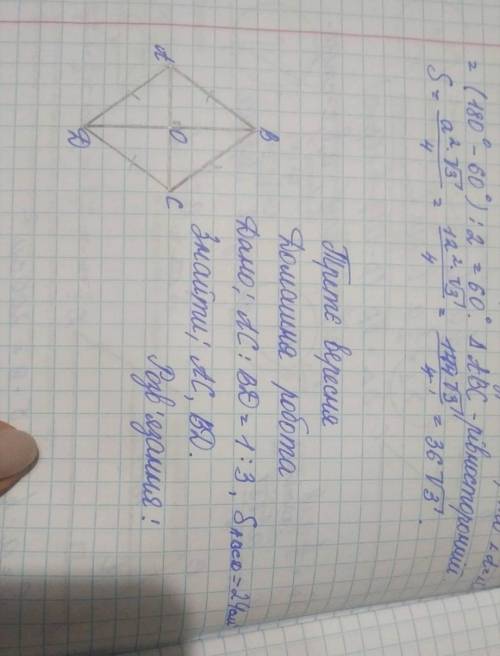 = (180° - 60°) : 2 = 60°. Δ ABC - рівносторонній
S = a²·√3 / 4 = 12²·√3 / 4 = 144√3 / 4 = 36√3.
Третє вересня
Домашня робота
Дано: AC : BD = 1 : 3, S ABCD = 24 см²
Знайти: AC, BD.
Розв'язання:
A
B
C
D
O